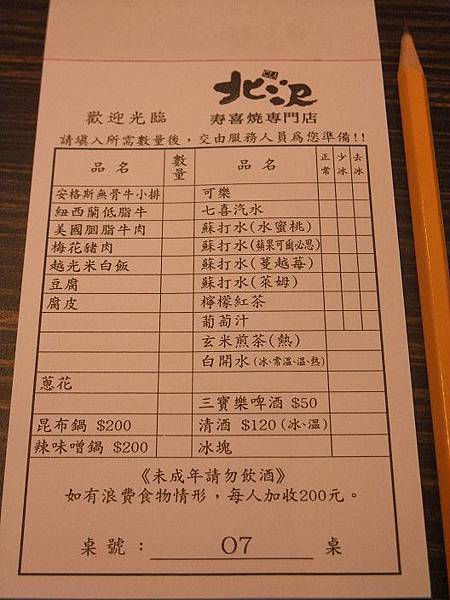 北澤
歡迎光臨 寿喜燒専門店
請填入所需數量後，交由服務人員為您準備!!
品名 數量 品名 正常 少冰 去冰
安格斯無骨牛小排 可樂
紐西蘭低脂牛 七喜汽水
美國胭脂牛肉 蘇打水(水蜜桃)
梅花豬肉 蘇打水(蘋果可爾必思)
越光米白飯 蘇打水(蔓越莓)
豆腐 蘇打水(萊姆)
腐皮 檸檬紅茶
葡萄汁
玄米煎茶(熱)
白開水(冰、常溫、溫、熱)
蔥花
三寶樂啤酒 $50
昆布鍋 $200 清酒 $120(冰、溫)
辣味噌鍋 $200 冰塊
《未成年請勿飲酒》
如有浪費食物情形，每人加收200元。
桌號： 07 桌